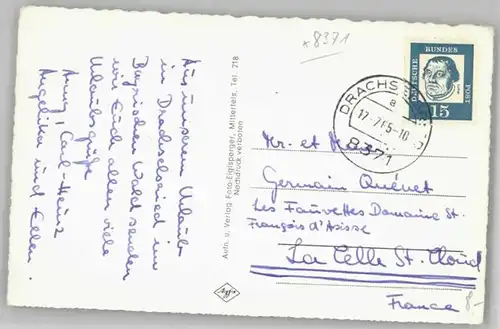 x 8371
Aus unserem Urlaub
in Drachselsried im
Bayrischen Wald senden
wir Euch allen viele
Urlaubsgrüße
Anny, Carl-Heinz
Angelika und Ellen.
Aufn. u. Verlag Foto-Eiglsperger, Mitterfels, Tel. 218
Nachdruck verboten
Agfa
DEUTSCHE
BUNDES
POST
15
DRACHS
a
17.-7.65-10
8371
Mr et
Germain Quénet
Les Fauvettes Domaine St.
François d'Assise
La Celle St. Cloud
France
8.-